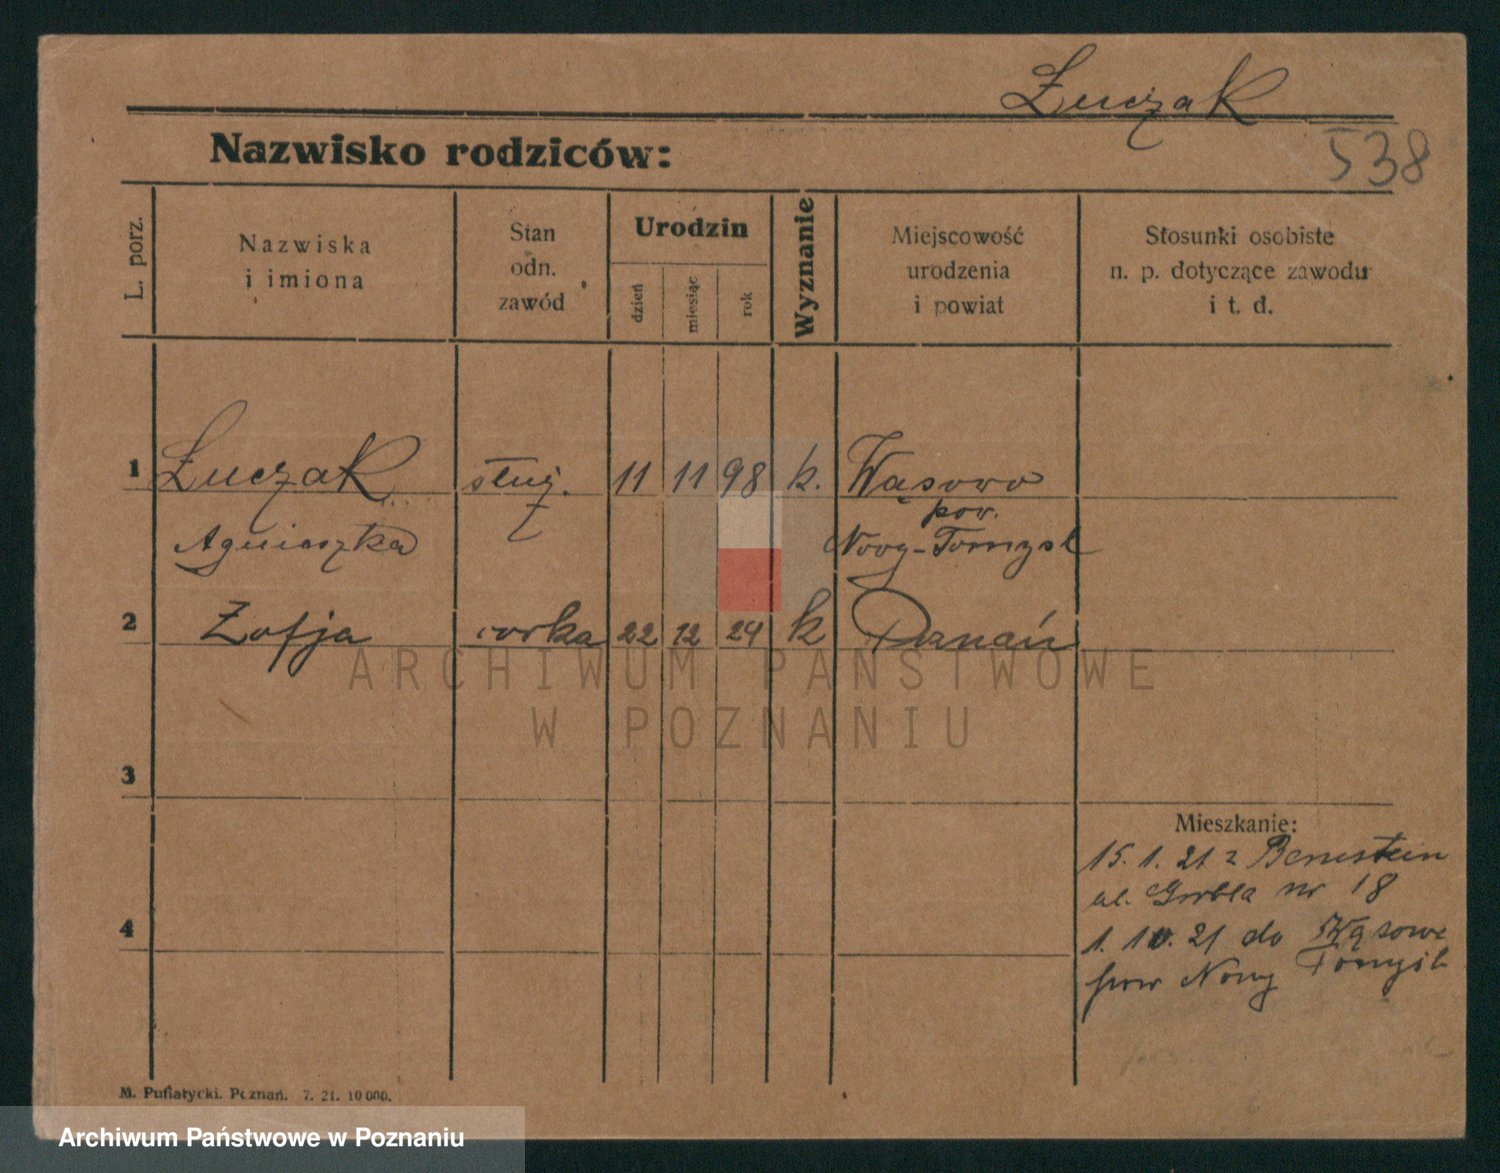 Łuczak
538
Nazwisko rodziców:
L. porz.
Nazwiska
i imiona
Stan
odn.
zawód
Urodzin
dzień
miesiąc
rok
Wyznanie
Miejscowość
urodzenia
i powiat
Stosunki osobiste
n. p. dotyczące zawodu
i t. d.
1 Łuczak służ. 11 11 98 k. Wąsowo
pow.
Agnieszka Nowy-Tomyśl
2 Zofja corka 22 12 24 k Poznań
3
4
Mieszkanie:
15. 1. 21 z
ul. Grobla nr 18
1. 10. 21 do Wąsowo
pow Nowy Tomyśl
M. Pufiatycki. Poznań. 7. 21. 10 000.
ARCHIWUM PAŃSTWOWE
W POZNANIU
Archiwum Państwowe w Poznaniu